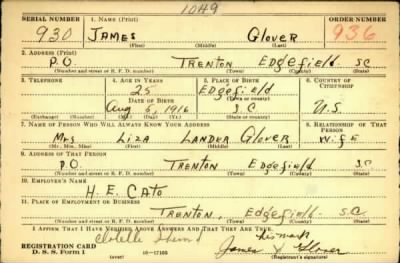 1049
SERIAL NUMBER 1. NAME (Print) ORDER NUMBER
930 JAMES Glover 936
(First) (Middle) (Last)
2. ADDRESS (Print)
P.O. Trenton Edgefield SC
(Number and street or R. F. D. number) (Town) (County) (State)
3. TELEPHONE 4. AGE IN YEARS 5. PLACE OF BIRTH 6. COUNTRY OF CITIZENSHIP
25 Edgefield
DATE OF BIRTH (Town or county)
Aug 5, 1916 S.C U.S
(Exchange) (Number) (Mo.) (Day) (Yr.) (State or country)
7. NAME OF PERSON WHO WILL ALWAYS KNOW YOUR ADDRESS 8. RELATIONSHIP OF THAT PERSON
Mrs Liza Lander Glover Wife
(Mr., Mrs., Miss) (First) (Middle) (Last)
9. ADDRESS OF THAT PERSON
P.O. Trenton Edgefield S.C
(Number and street or R. F. D. number) (Town) (County) (State)
10. EMPLOYER'S NAME
H. E. Cato
11. PLACE OF EMPLOYMENT OR BUSINESS
Trenton, Edgefield S.C
(Number and street or R. F. D. number) (Town) (County) (State)
I AFFIRM THAT I HAVE VERIFIED ABOVE ANSWERS AND THAT THEY ARE TRUE.
his mark
REGISTRATION CARD James X Glover
D. S. S. Form 1 (over) 16-17105 (Registrant's signature)